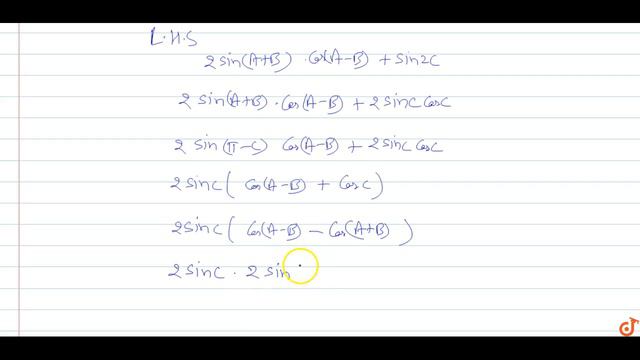 L.H.S
2 sin(A+B) · Cos(A-B) + sin2C
2 sin(A+B) · Cos(A-B) + 2 sinC CosC
2 sin(π-C) Cos(A-B) + 2 sinC CosC
2 sinC ( Cos(A-B) + CosC )
2 sinC ( Cos(A-B) - Cos(A+B) )
2 sinC · 2 sin